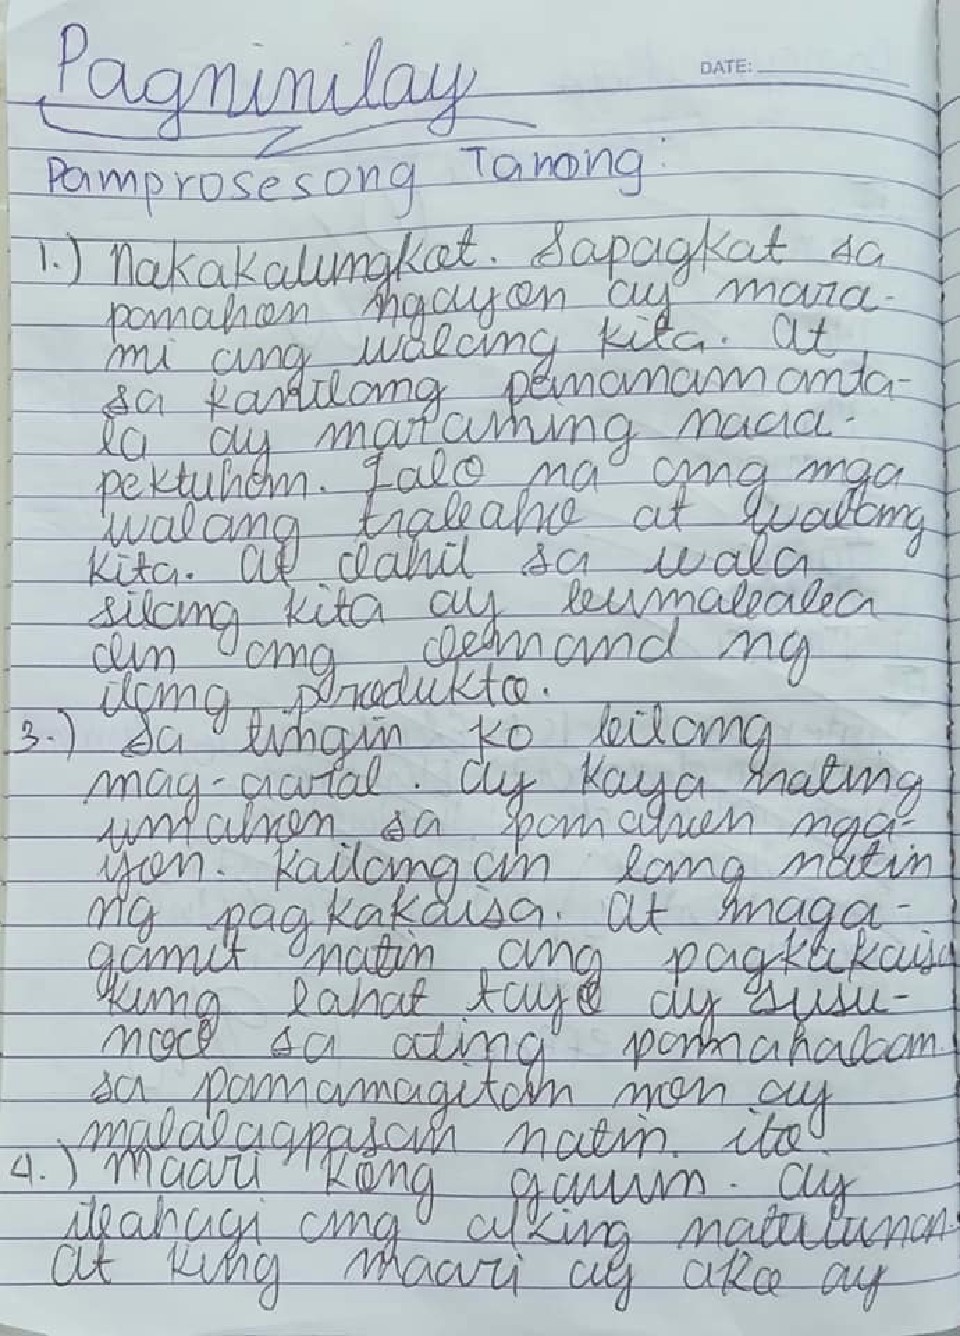 Pagninilay
DATE:
Pamprosesong Tanong:
1.) Nakakalungkot. Sapagkat sa
panahon ngayon ay mara-
mi ang walang kita. At
sa kanilang pananamanta-
la ay maraming naaa-
pektuhan. Lalo na ang mga
walang trabaho at walang
kita. At dahil sa wala
silang kita ay bumababa
din ang demand ng
ilang produkto.
3.) Sa tingin ko bilang
mag-aaral. Ay kaya nating
umahon sa panahon nga-
yon. Kailangan lang natin
ng pagkakaisa. At maga-
gamit natin ang pagkakaisa
kung lahat tayo ay susu-
nod sa ating pamahalaan
sa pamamagitan non ay
malalagpasan natin ito
4.) Maari kong gawin. Ay
ibahagi ang aking natutunan.
At kung maari ay ako ay